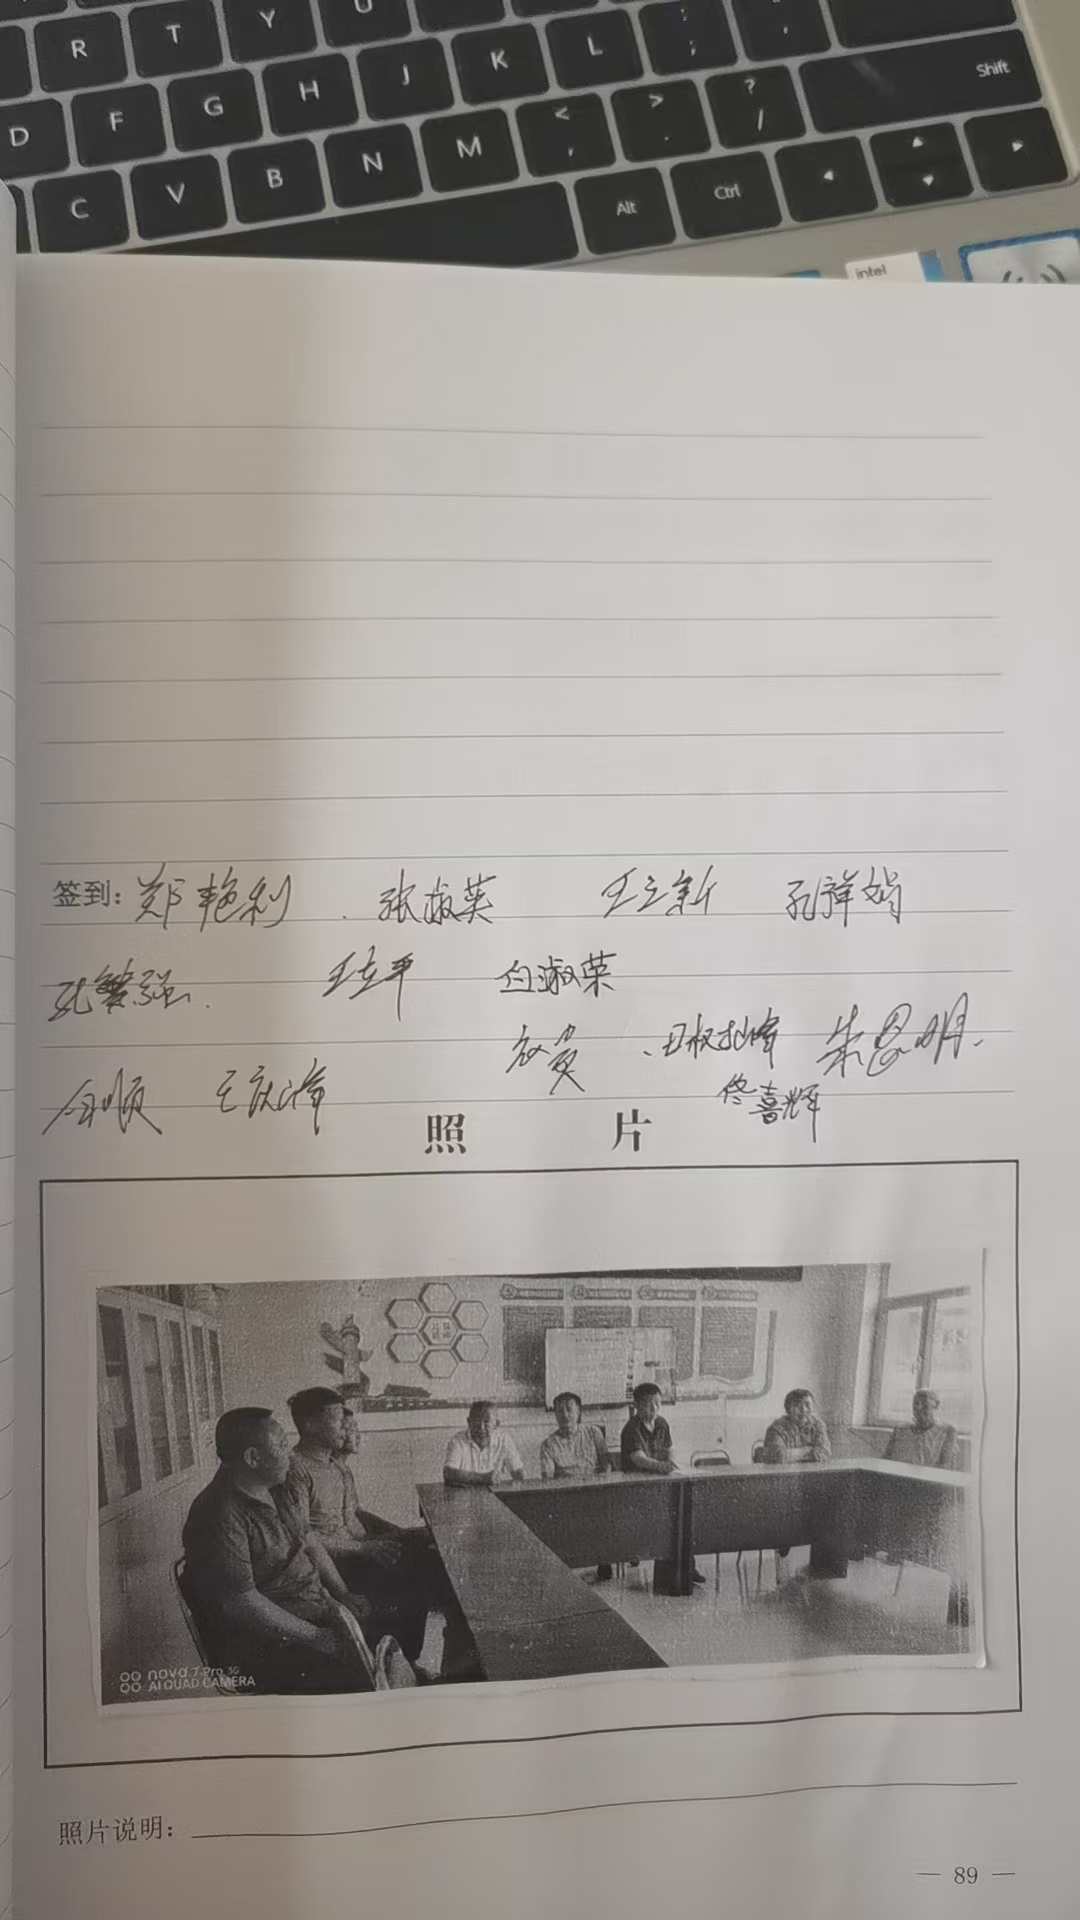 R T Y U
D F G H J K L ; Shift
C V B N M < , > . ? /
Alt Ctrl
intel
签到: 郑艳利 张淑英 王立新 孔祥娟
孔繁强 王立平 白淑荣
朱恩明
佟喜辉
照 片
nova 7 Pro 5G
AI QUAD CAMERA
照片说明:
— 89 —